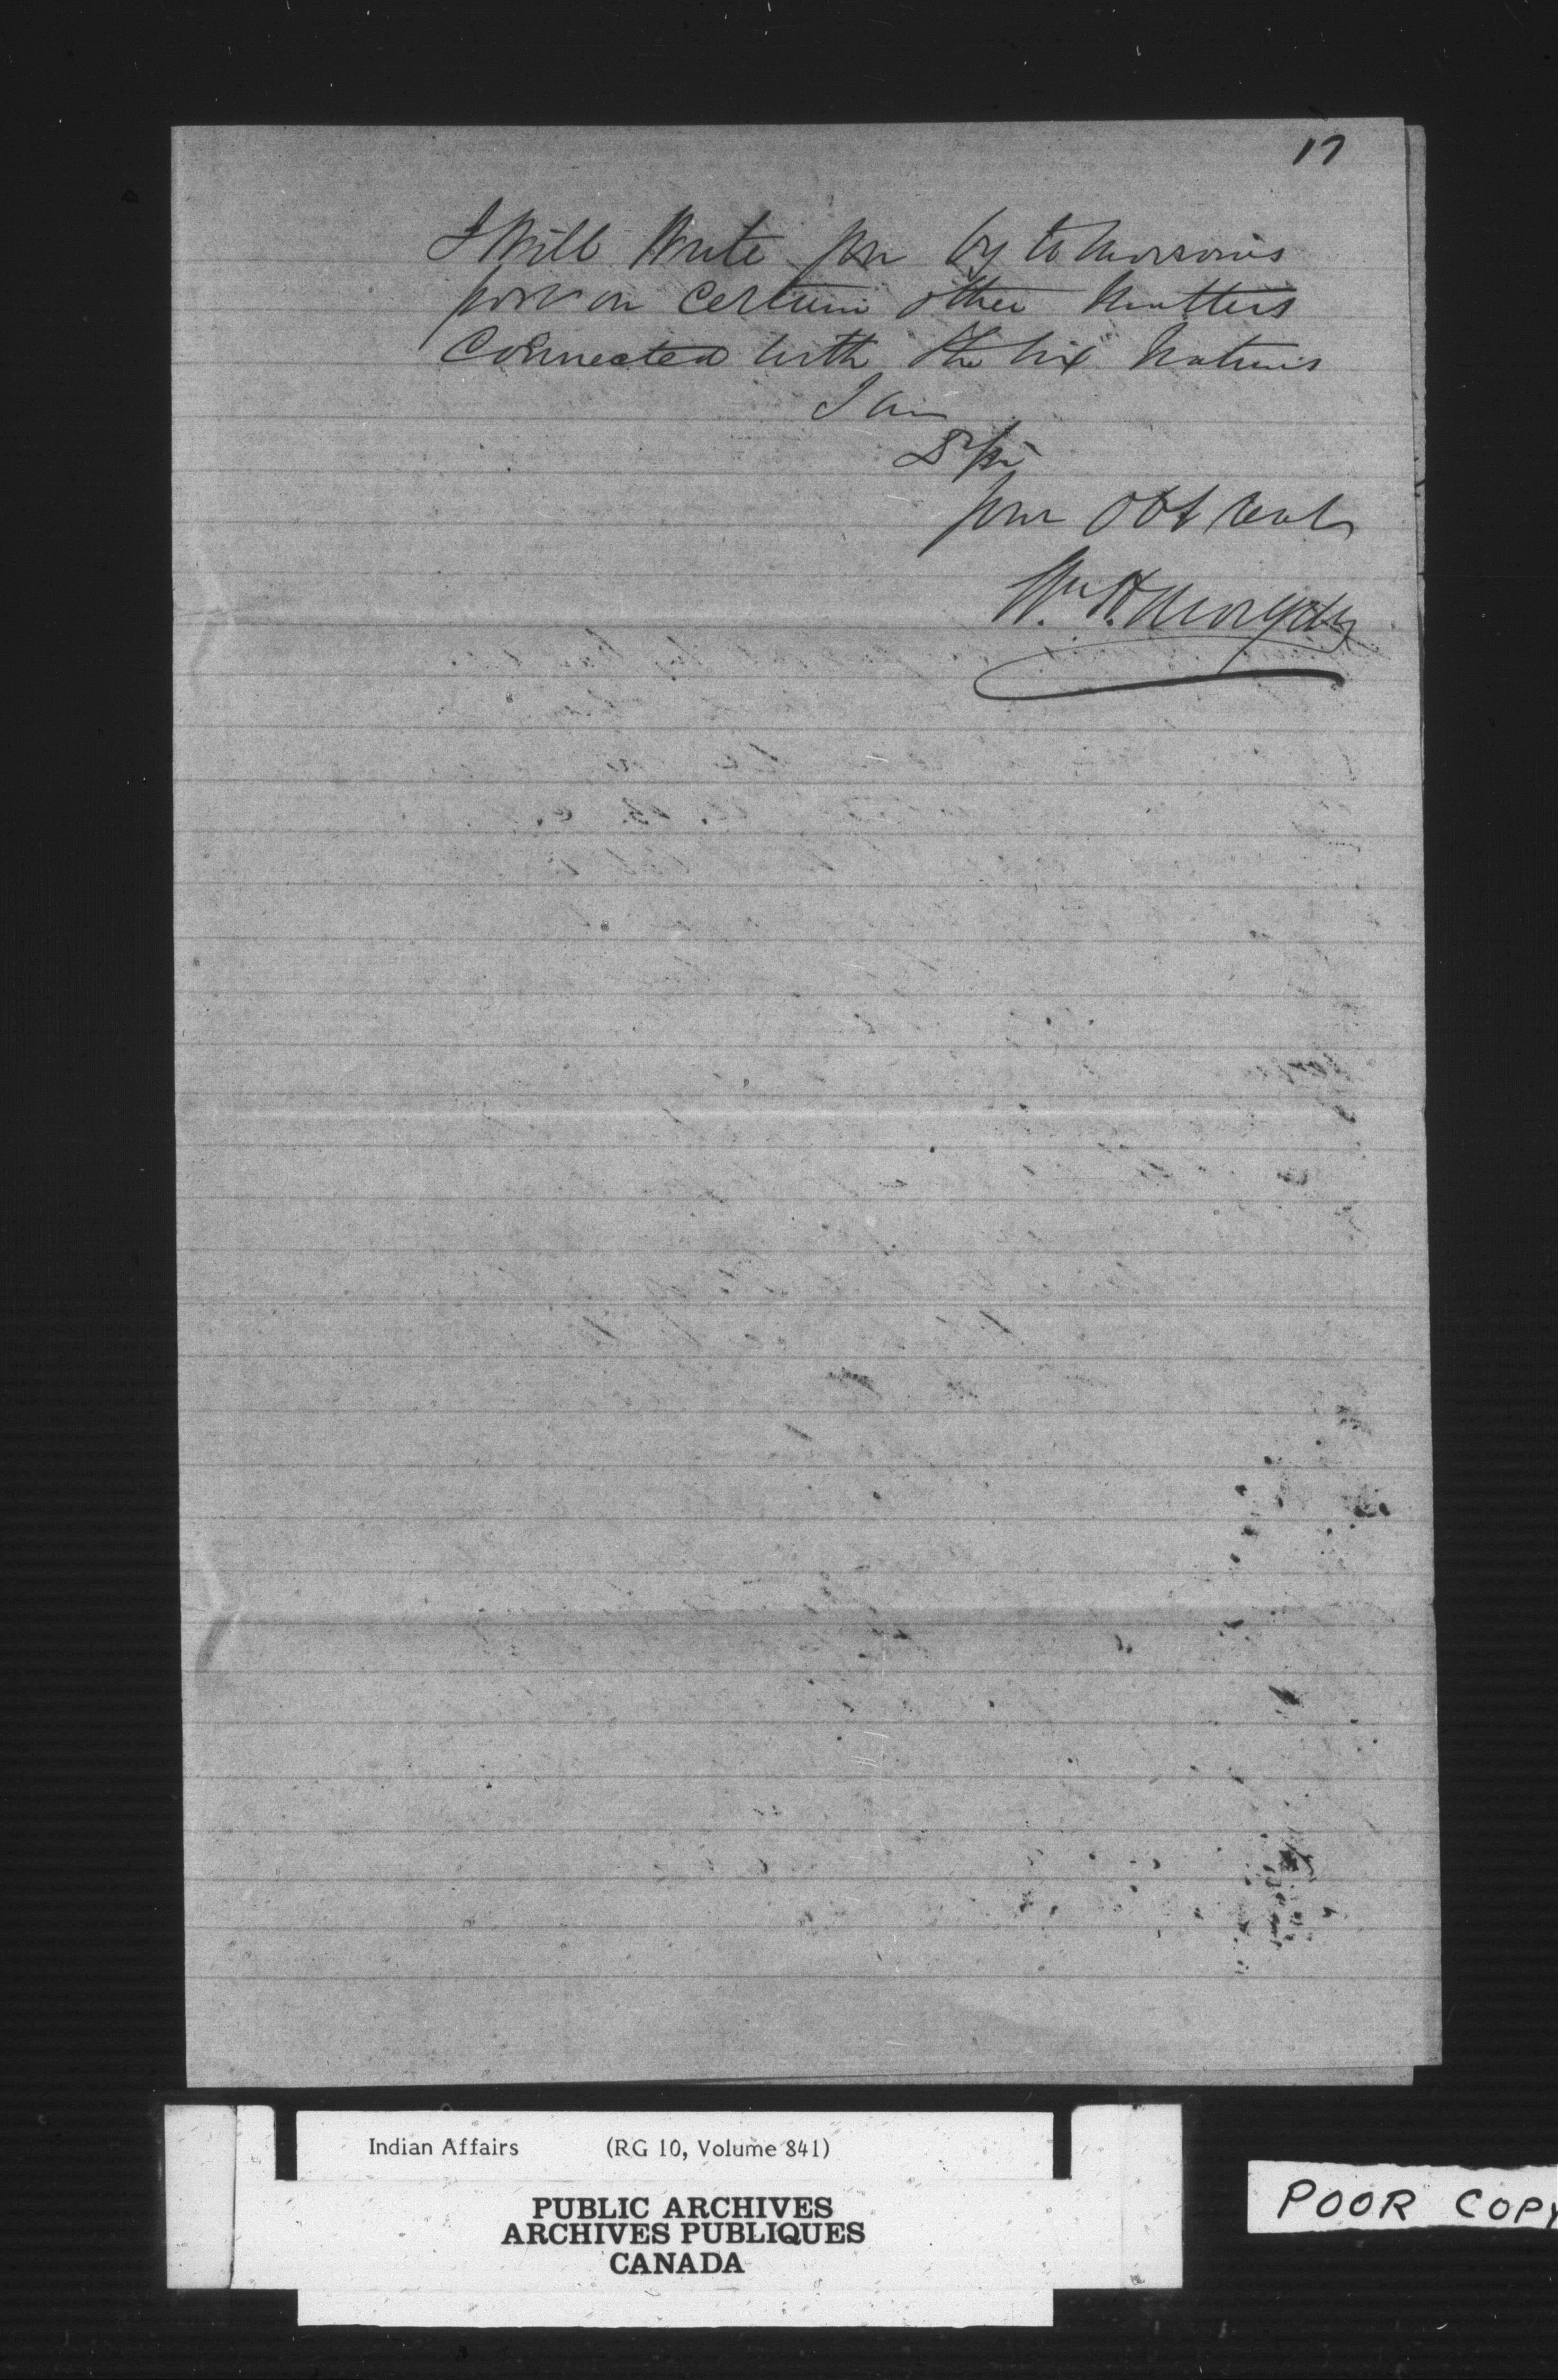 17
I Will Write you by to morrow's
post on Certain other Matters
Connected with the Six Nations
I am
Dr Sir
your Obt Servt
Wm H. Morgan
Indian Affairs (RG 10, Volume 841)
PUBLIC ARCHIVES
ARCHIVES PUBLIQUES
CANADA
POOR COPY